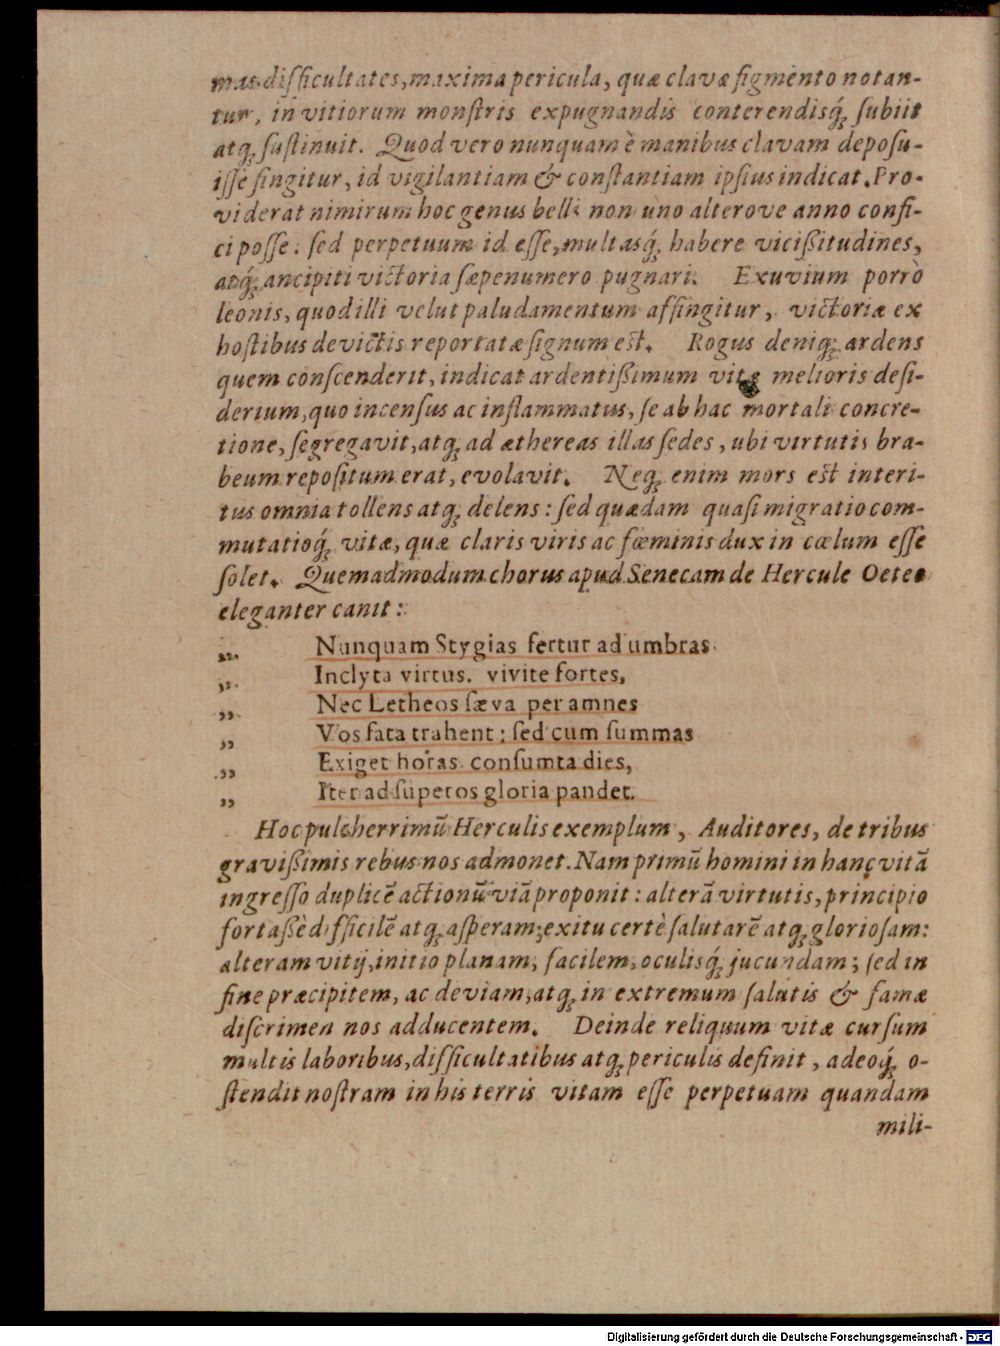 mas difficultates, maxima pericula, quæ clavæ figmento notan-
tur, in vitiorum monstris expugnandis conterendisq́; subiit
atq; sustinuit. Quod vero nunquam è manibus clavam deposu-
isse fingitur, id vigilantiam & constantiam ipsius indicat. Pro-
viderat nimirum hoc genus belli non uno alterove anno confi-
ci posse: sed perpetuum id esse, multasq́; habere vicißitudines,
atq́; ancipiti victoria sæpenumero pugnari. Exuvium porrò
leonis, quod illi velut paludamentum affingitur, victoriæ ex
hostibus devictis reportatæ signum est. Rogus deniq; ardens
quem conscenderit, indicat ardentißimum vitæ melioris desi-
derium, quo incensus ac inflammatus, se ab hac mortali concre-
tione, segregavit, atq; ad æthereas illas sedes, ubi virtutis bra-
beum repositum erat, evolavit. Neq; enim mors est interi-
tus omnia tollens atq; delens: sed quædam quasi migratio com-
mutatioq́; vitæ, quæ claris viris ac fœminis dux in cœlum esse
solet. Quemadmodum chorus apud Senecam de Hercule Oeteo
eleganter canit:
„ Nunquam Stygias fertur ad umbras
„ Inclyta virtus. vivite fortes,
„ Nec Letheos sæva per amnes
„ Vos fata trahent; sed cum summas
„ Exiget horas consumta dies,
„ Iter ad superos gloria pandet.
Hoc pulcherrimũ Herculis exemplum, Auditores, de tribus
gravißimis rebus nos admonet. Nam primũ homini in hanc vitã
ingresso duplicẽ actionũ viã proponit: alterã virtutis, principio
fortaßè difficilẽ atq; asperam; exitu certè salutarẽ atq; gloriosam:
alteram vitij, initio planam, facilem, oculisq́; jucundam; sed in
fine præcipitem, ac deviam, atq; in extremum salutis & famæ
discrimen nos adducentem. Deinde reliquum vitæ cursum
multis laboribus, difficultatibus atq; periculis definit, adeoq́; o-
stendit nostram in his terris vitam esse perpetuam quandam
mili-
Digitalisierung gefördert durch die Deutsche Forschungsgemeinschaft - DFG